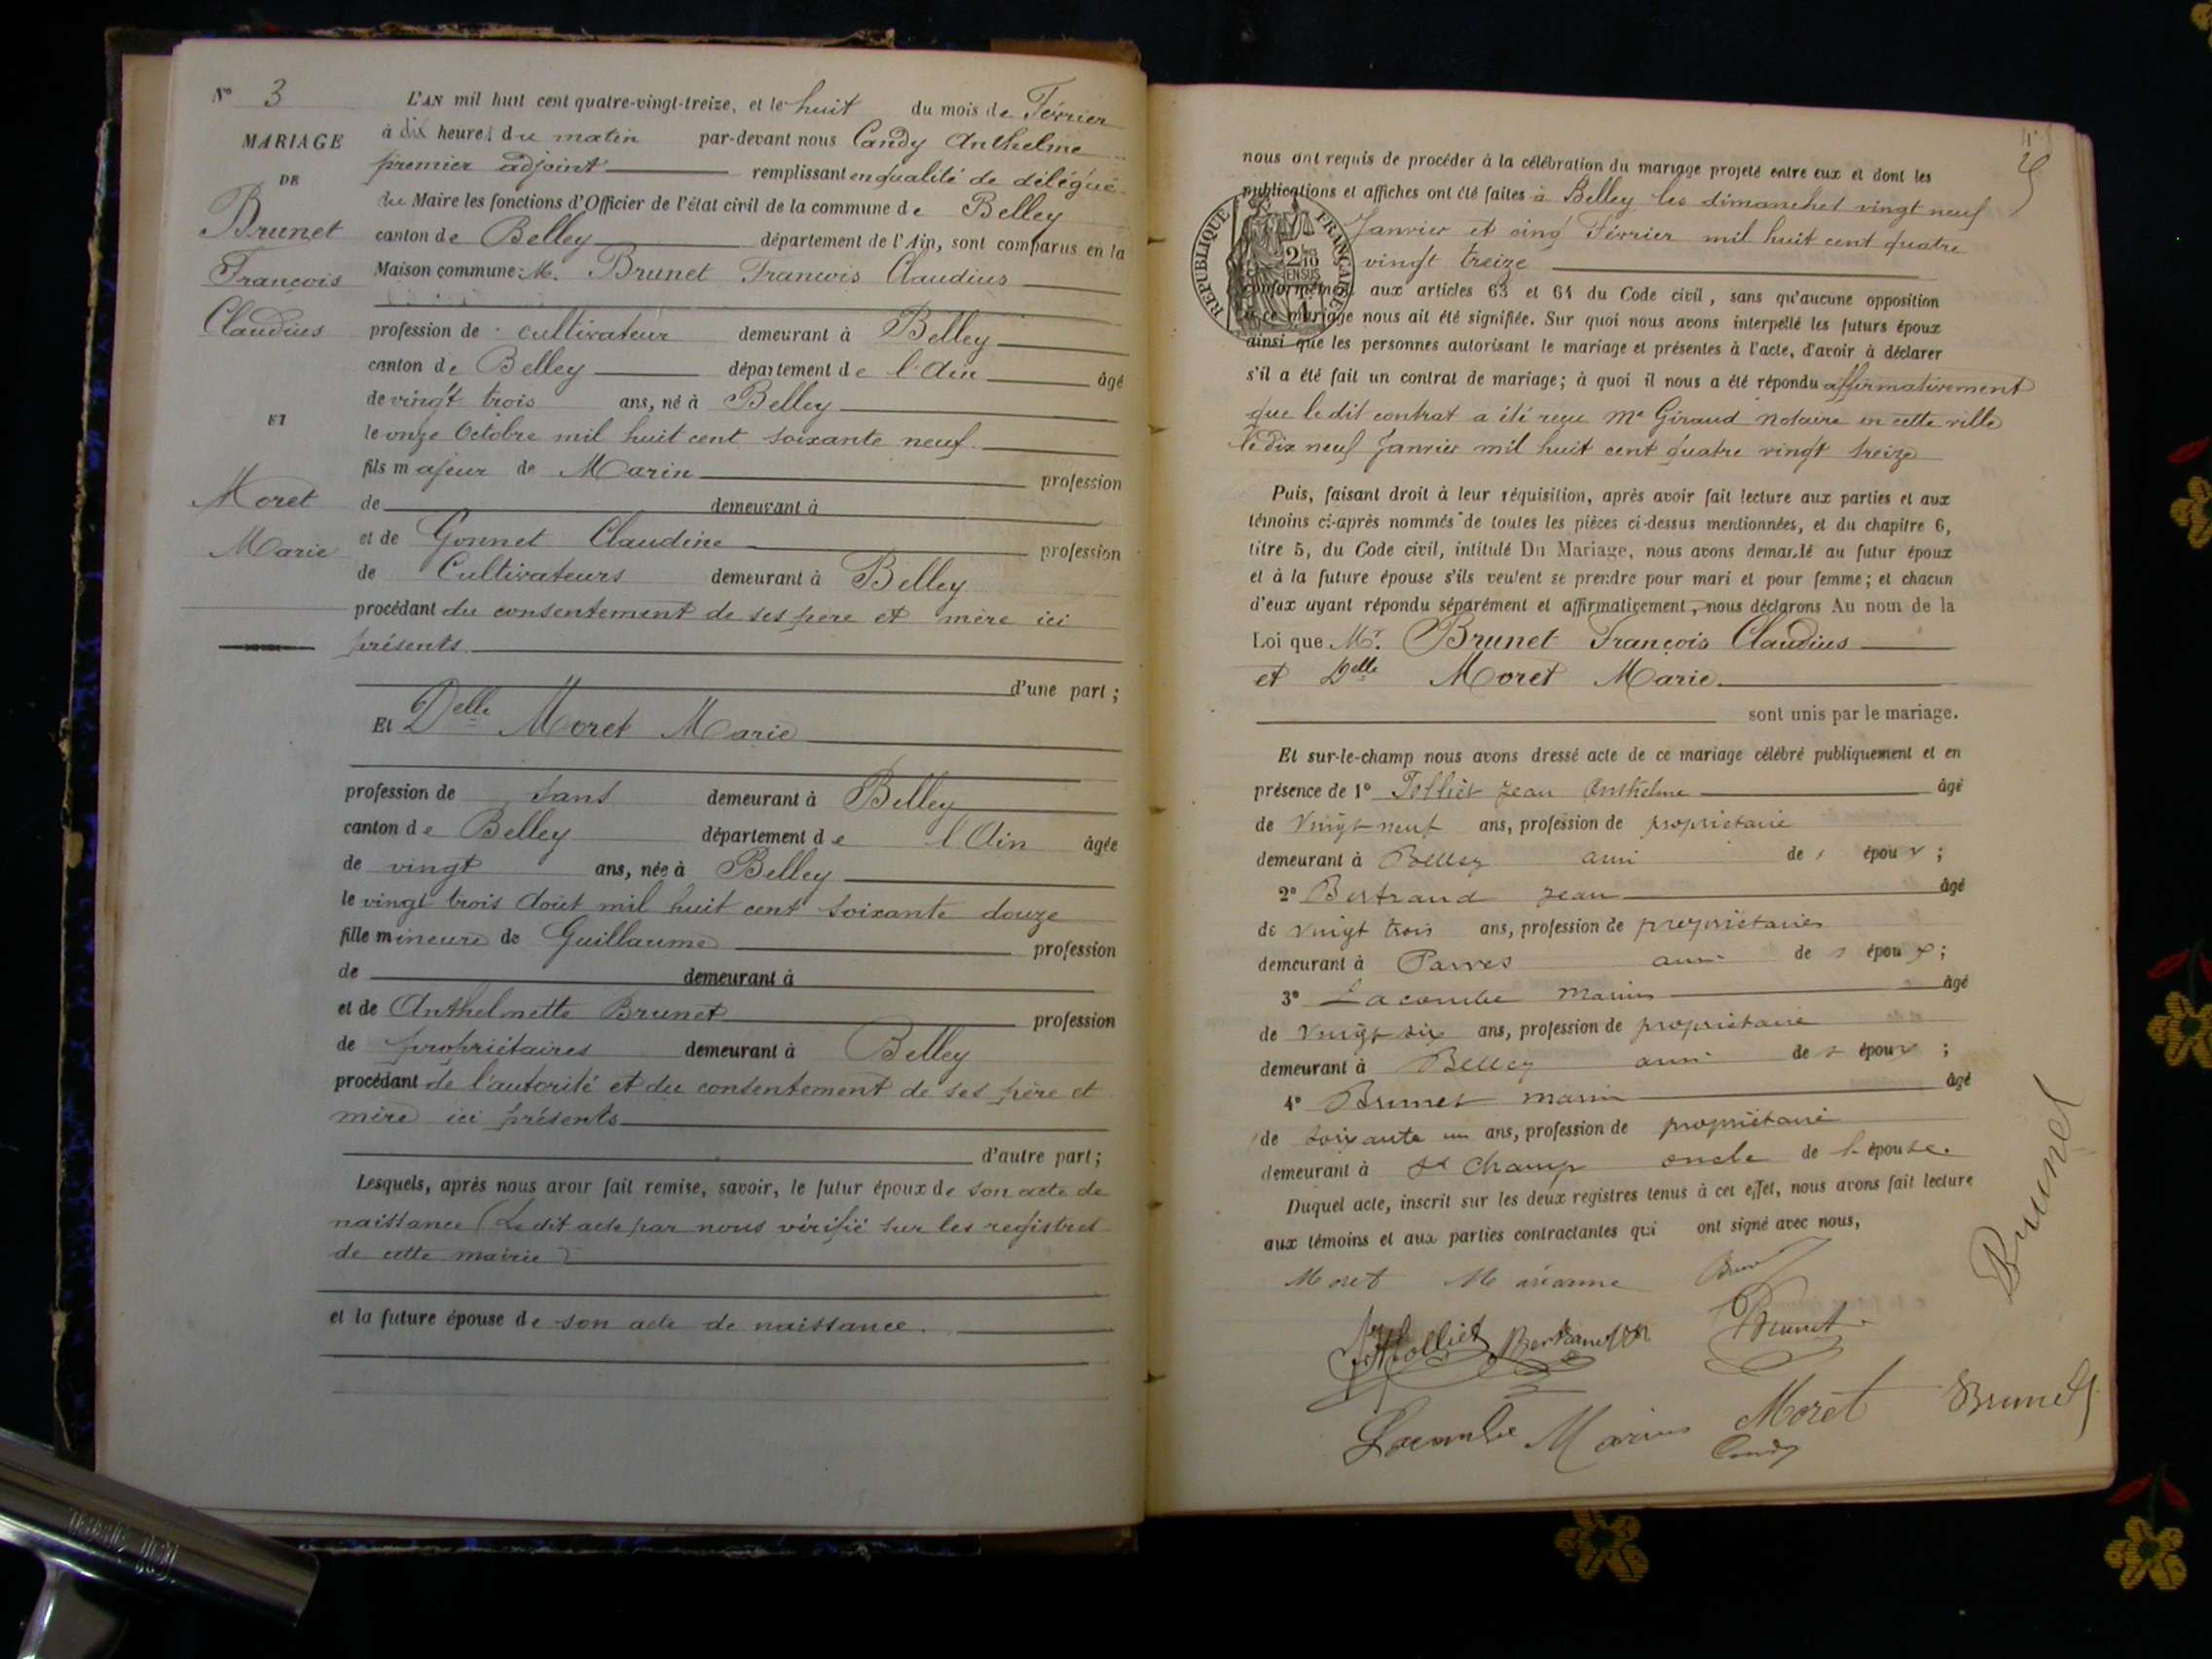 N° 3
MARIAGE
DE
Brunet
François
Claudius
ET
Moret
Marie
L'AN mil huit cent quatre-vingt-treize, et le huit du mois de Février
à dix heures du matin par-devant nous Candy Anthelme
premier adjoint remplissant en qualité de délégué
du Maire les fonctions d'Officier de l'état civil de la commune de Belley
canton de Belley département de l'Ain, sont comparus en la
Maison commune: M. Brunet Francois Claudius
profession de cultivateur demeurant à Belley
canton de Belley département de l'Ain âgé
de vingt trois ans, né à Belley
le onze Octobre mil huit cent soixante neuf
fils majeur de Marin profession
de demeurant à
et de Gonnet Claudine profession
de Cultivateurs demeurant à Belley
procédant du consentement de ses père et mère ici
présents
d'une part;
Et Delle Moret Marie
profession de sans demeurant à Belley
canton de Belley département de l'Ain âgée
de vingt ans, née à Belley
le vingt trois Août mil huit cent soixante douze
fille mineure de Guillaume profession
de demeurant à
et de Anthelmette Brunet profession
de propriétaires demeurant à Belley
procédant de l'autorité et du consentement de ses père et
mère ici présents
d'autre part;
Lesquels, après nous avoir fait remise, savoir, le futur époux de son acte de
naissance (Le dit acte par nous vérifié sur les registres
de cette mairie)
et la future épouse de son acte de naissance.
nous ont requis de procéder à la célébration du mariage projeté entre eux et dont les
publications et affiches ont été faites à Belley les dimanches vingt neuf
Janvier et cinq Février mil huit cent quatre
vingt treize
REPUBLIQUE FRANÇAISE
conformément aux articles 63 et 64 du Code civil, sans qu'aucune opposition
à ce mariage nous ait été signifiée. Sur quoi nous avons interpellé les futurs époux
ainsi que les personnes autorisant le mariage et présentes à l'acte, d'avoir à déclarer
s'il a été fait un contrat de mariage; à quoi il nous a été répondu affirmativement
que le dit contrat a été reçu Me Giraud notaire en cette ville
le dix neuf Janvier mil huit cent quatre vingt treize
Puis, faisant droit à leur réquisition, après avoir fait lecture aux parties et aux
témoins ci-après nommés de toutes les pièces ci-dessus mentionnées, et du chapitre 6,
titre 5, du Code civil, intitulé Du Mariage, nous avons demandé au futur époux
et à la future épouse s'ils veulent se prendre pour mari et pour femme; et chacun
d'eux ayant répondu séparément et affirmativement, nous déclarons Au nom de la
Loi que Mr. Brunet François Claudius
et Delle Moret Marie
sont unis par le mariage.
Et sur-le-champ nous avons dressé acte de ce mariage célébré publiquement et en
présence de 1° Tolliet Jean Anthelme âgé
de Vingt-neuf ans, profession de propriétaire
demeurant à Belley ami de s époux;
2° Bertrand Jean âgé
de Vingt trois ans, profession de propriétaires
demeurant à Parves ami de s époux;
3° Lacombe Marius âgé
de Vingt six ans, profession de propriétaire
demeurant à Belley ami de s époux;
4° Brunet Marin âgé
de soixante un ans, profession de propriétaire
demeurant à St Champ oncle de l'épouse.
Duquel acte, inscrit sur les deux registres tenus à cet effet, nous avons fait lecture
aux témoins et aux parties contractantes qui ont signé avec nous,
Moret Marianne
JATolliet Bertrand Brunet
Brunet
Lacombe Marius Moret Brunet
Candy